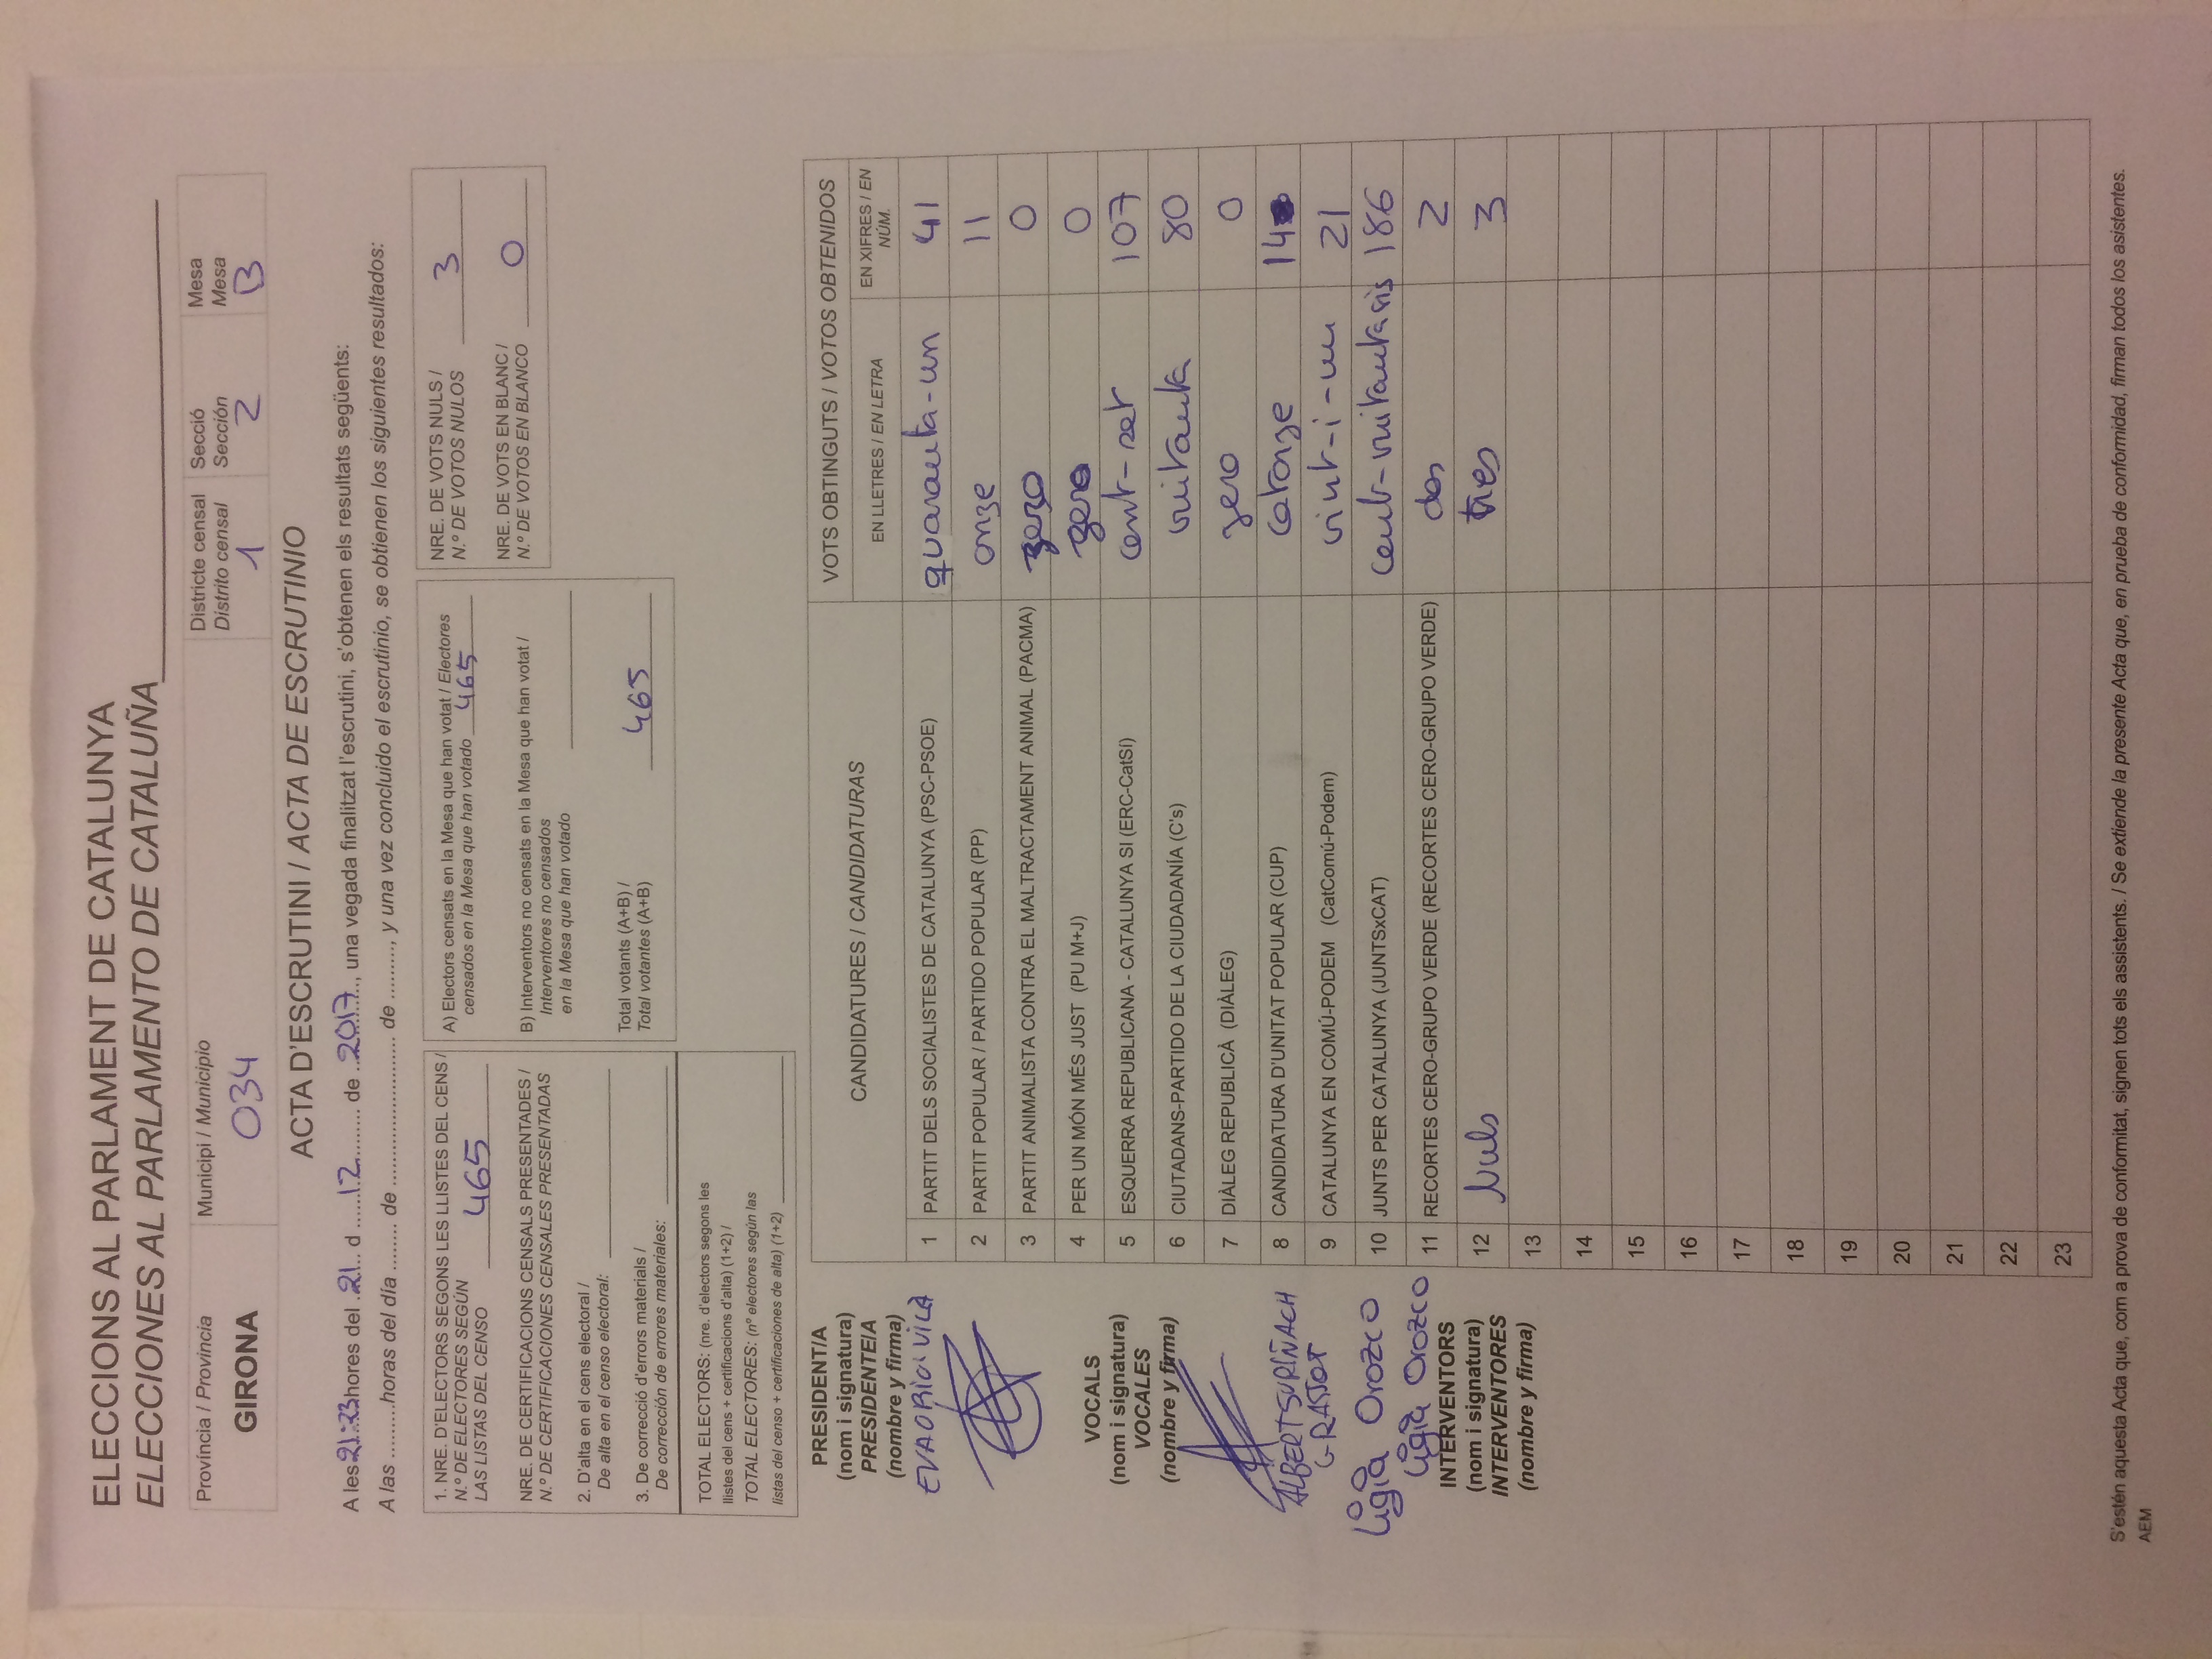 ELECCIONS AL PARLAMENT DE CATALUNYA
ELECCIONES AL PARLAMENTO DE CATALUÑA
Província / Provincia
GIRONA
Municipi / Municipio
034
Districte censal
Distrito censal
1
Secció
Sección
2
Mesa
Mesa
B
ACTA D'ESCRUTINI / ACTA DE ESCRUTINIO
A les 21:23 hores del .21.. d ......12......... de ..2017.., una vegada finalitzat l'escrutini, s'obtenen els resultats següents:
A las .........horas del día ........ de ............................ de ........., y una vez concluido el escrutinio, se obtienen los siguientes resultados:
1. NRE. D'ELECTORS SEGONS LES LLISTES DEL CENS /
N.º DE ELECTORES SEGÚN
LAS LISTAS DEL CENSO 465
NRE. DE CERTIFICACIONS CENSALS PRESENTADES /
N.º DE CERTIFICACIONES CENSALES PRESENTADAS
2. D'alta en el cens electoral /
De alta en el censo electoral:
3. De correcció d'errors materials /
De corrección de errores materiales:
TOTAL ELECTORS: (nre. d'electors segons les
llistes del cens + certificacions d'alta) (1+2) /
TOTAL ELECTORES: (nº electores según las
listas del censo + certificaciones de alta) (1+2)
A) Electors censats en la Mesa que han votat / Electores
censados en la Mesa que han votado 465
B) Interventors no censats en la Mesa que han votat /
Interventores no censados
en la Mesa que han votado
Total votants (A+B) /
Total votantes (A+B) 465
NRE. DE VOTS NULS /
N.º DE VOTOS NULOS 3
NRE. DE VOTS EN BLANC /
N.º DE VOTOS EN BLANCO 0
PRESIDENT/A
(nom i signatura)
PRESIDENTE/A
(nombre y firma)
EVA ORIOL VILÀ
VOCALS
(nom i signatura)
VOCALES
(nombre y firma)
ALBERT SURIÑACH
GRASSOT
Ligia Orozco
Ligia Orozco
INTERVENTORS
(nom i signatura)
INTERVENTORES
(nombre y firma)
CANDIDATURES / CANDIDATURAS
VOTS OBTINGUTS / VOTOS OBTENIDOS
EN LLETRES / EN LETRA
EN XIFRES / EN
NÚM.
1 PARTIT DELS SOCIALISTES DE CATALUNYA (PSC-PSOE) quaranta-un 41
2 PARTIT POPULAR / PARTIDO POPULAR (PP) onze 11
3 PARTIT ANIMALISTA CONTRA EL MALTRACTAMENT ANIMAL (PACMA) zero 0
4 PER UN MÓN MÉS JUST (PU M+J) zero 0
5 ESQUERRA REPUBLICANA - CATALUNYA SI (ERC-CatSí) cent-set 107
6 CIUTADANS-PARTIDO DE LA CIUDADANÍA (C's) vuitanta 80
7 DIÀLEG REPUBLICÀ (DIÀLEG) zero 0
8 CANDIDATURA D'UNITAT POPULAR (CUP) catorze 14
9 CATALUNYA EN COMÚ-PODEM (CatComú-Podem) vint-i-un 21
10 JUNTS PER CATALUNYA (JUNTSxCAT) cent-vuitanta sis 186
11 RECORTES CERO-GRUPO VERDE (RECORTES CERO-GRUPO VERDE) dos 2
12 Nuls tres 3
13
14
15
16
17
18
19
20
21
22
23
S'estén aquesta Acta que, com a prova de conformitat, signen tots els assistents. / Se extiende la presente Acta que, en prueba de conformidad, firman todos los asistentes.
AEM